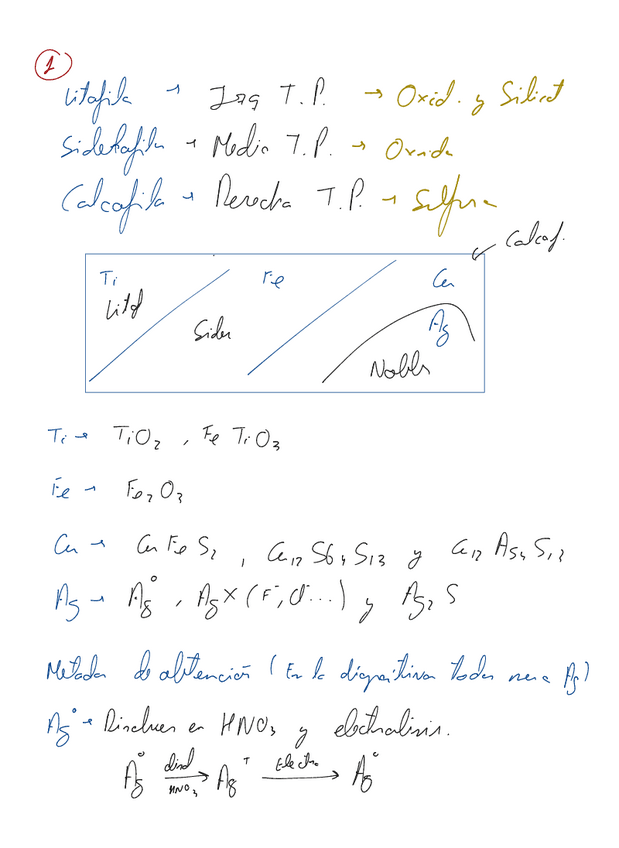 1
Litofila → Izq T.P. → Oxid. y Silicat
Siderofila → Medio T.P. → Oxido
Calcofila → Derecha T.P. → Sulfuro
Calcof.
Ti Fe Cu
Litof Sider Ag
Nobles
Ti → TiO₂, FeTiO₃
Fe → Fe₂O₃
Cu → CuFeS₂, Cu₁₂Sb₄S₁₃ y Cu₁₂As₄S₁₃
Ag → Ag⁰, AgX (F⁻, Cl⁻...) y Ag₂S
Metodos de obtención (En la diapositiva todos menos Ag)
Ag⁰ → Disolver en HNO₃ y electrolisis.
Ag⁰ disol HNO₃ → Ag⁺ Electro → Ag⁰